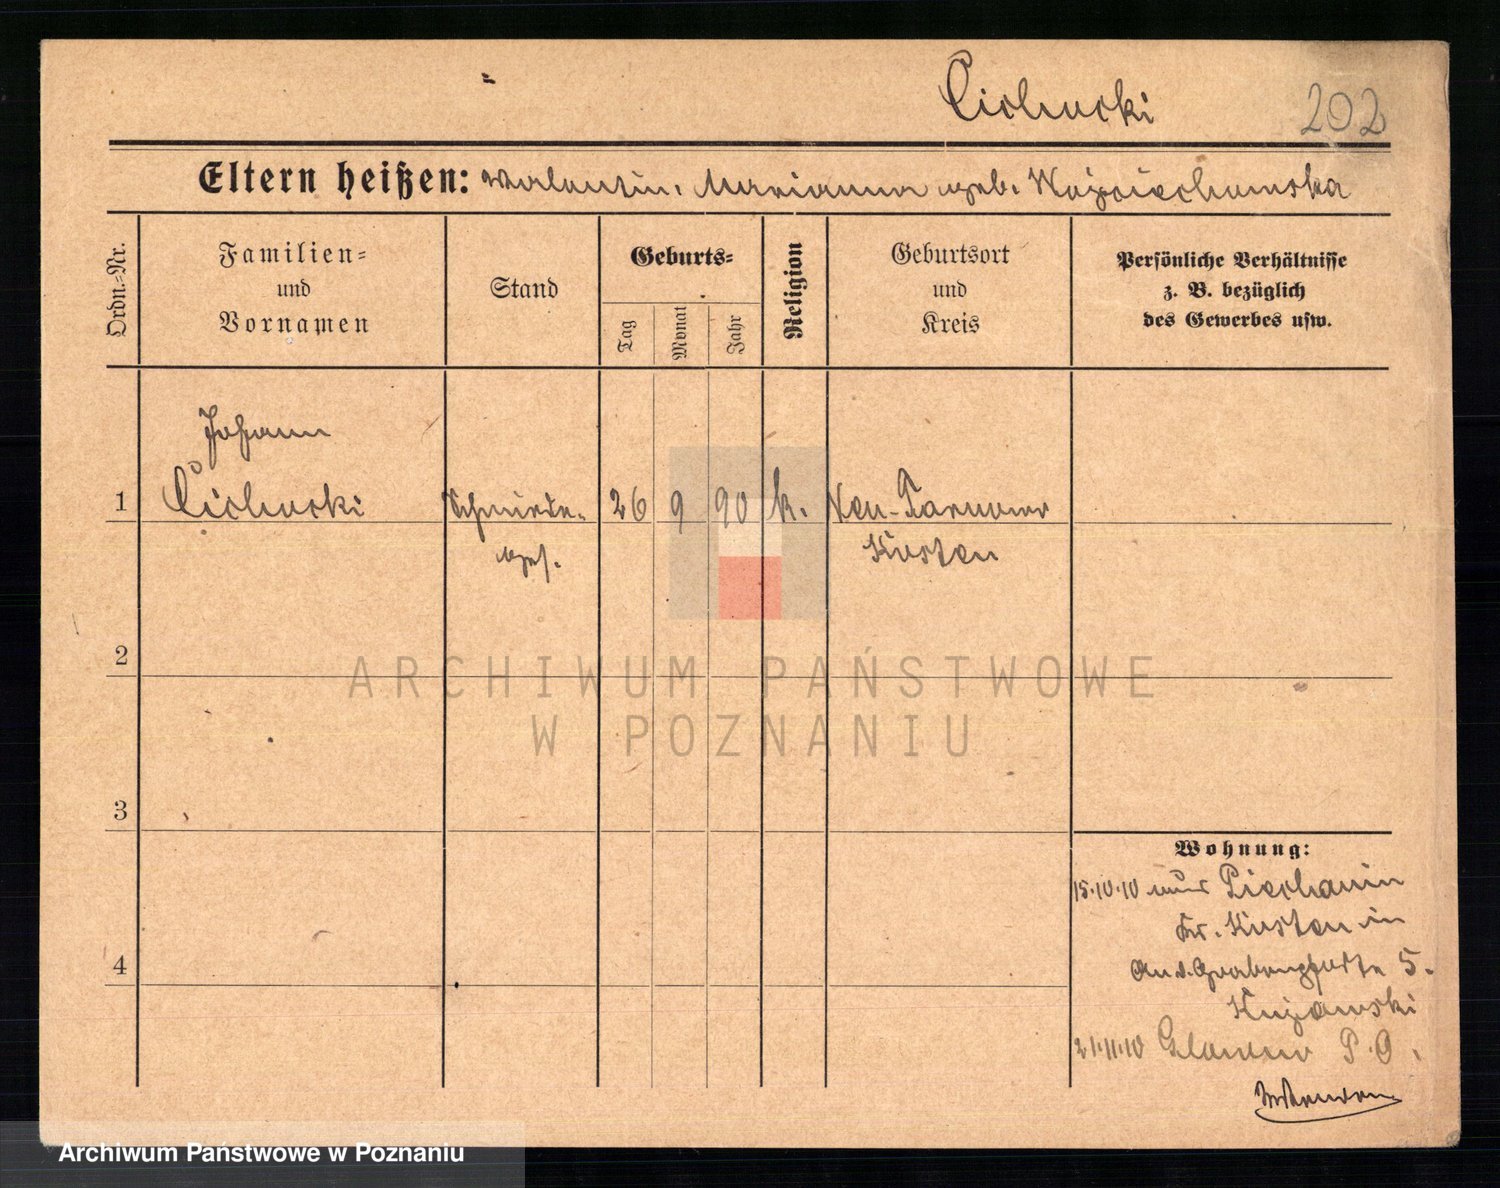 Cichucki
202
Eltern heißen: Valentin, Marianna geb. Wojciechowska
Ordn.-Nr.
Familien-
und
Vornamen
Stand
Geburts-
Tag
Monat
Jahr
Religion
Geburtsort
und
Kreis
Persönliche Verhältnisse
z. B. bezüglich
des Gewerbes usw.
Johann
1 Cichucki Schmiede- 26 9 90 k. Neu-Tarnowo
ges. Kosten
2
ARCHIWUM PAŃSTWOWE
W POZNANIU
3
Wohnung:
15.10.10 Piechanin
Kr. Kosten in
5.
Kujawski
21.11.10 P. O.
4
Archiwum Państwowe w Poznaniu